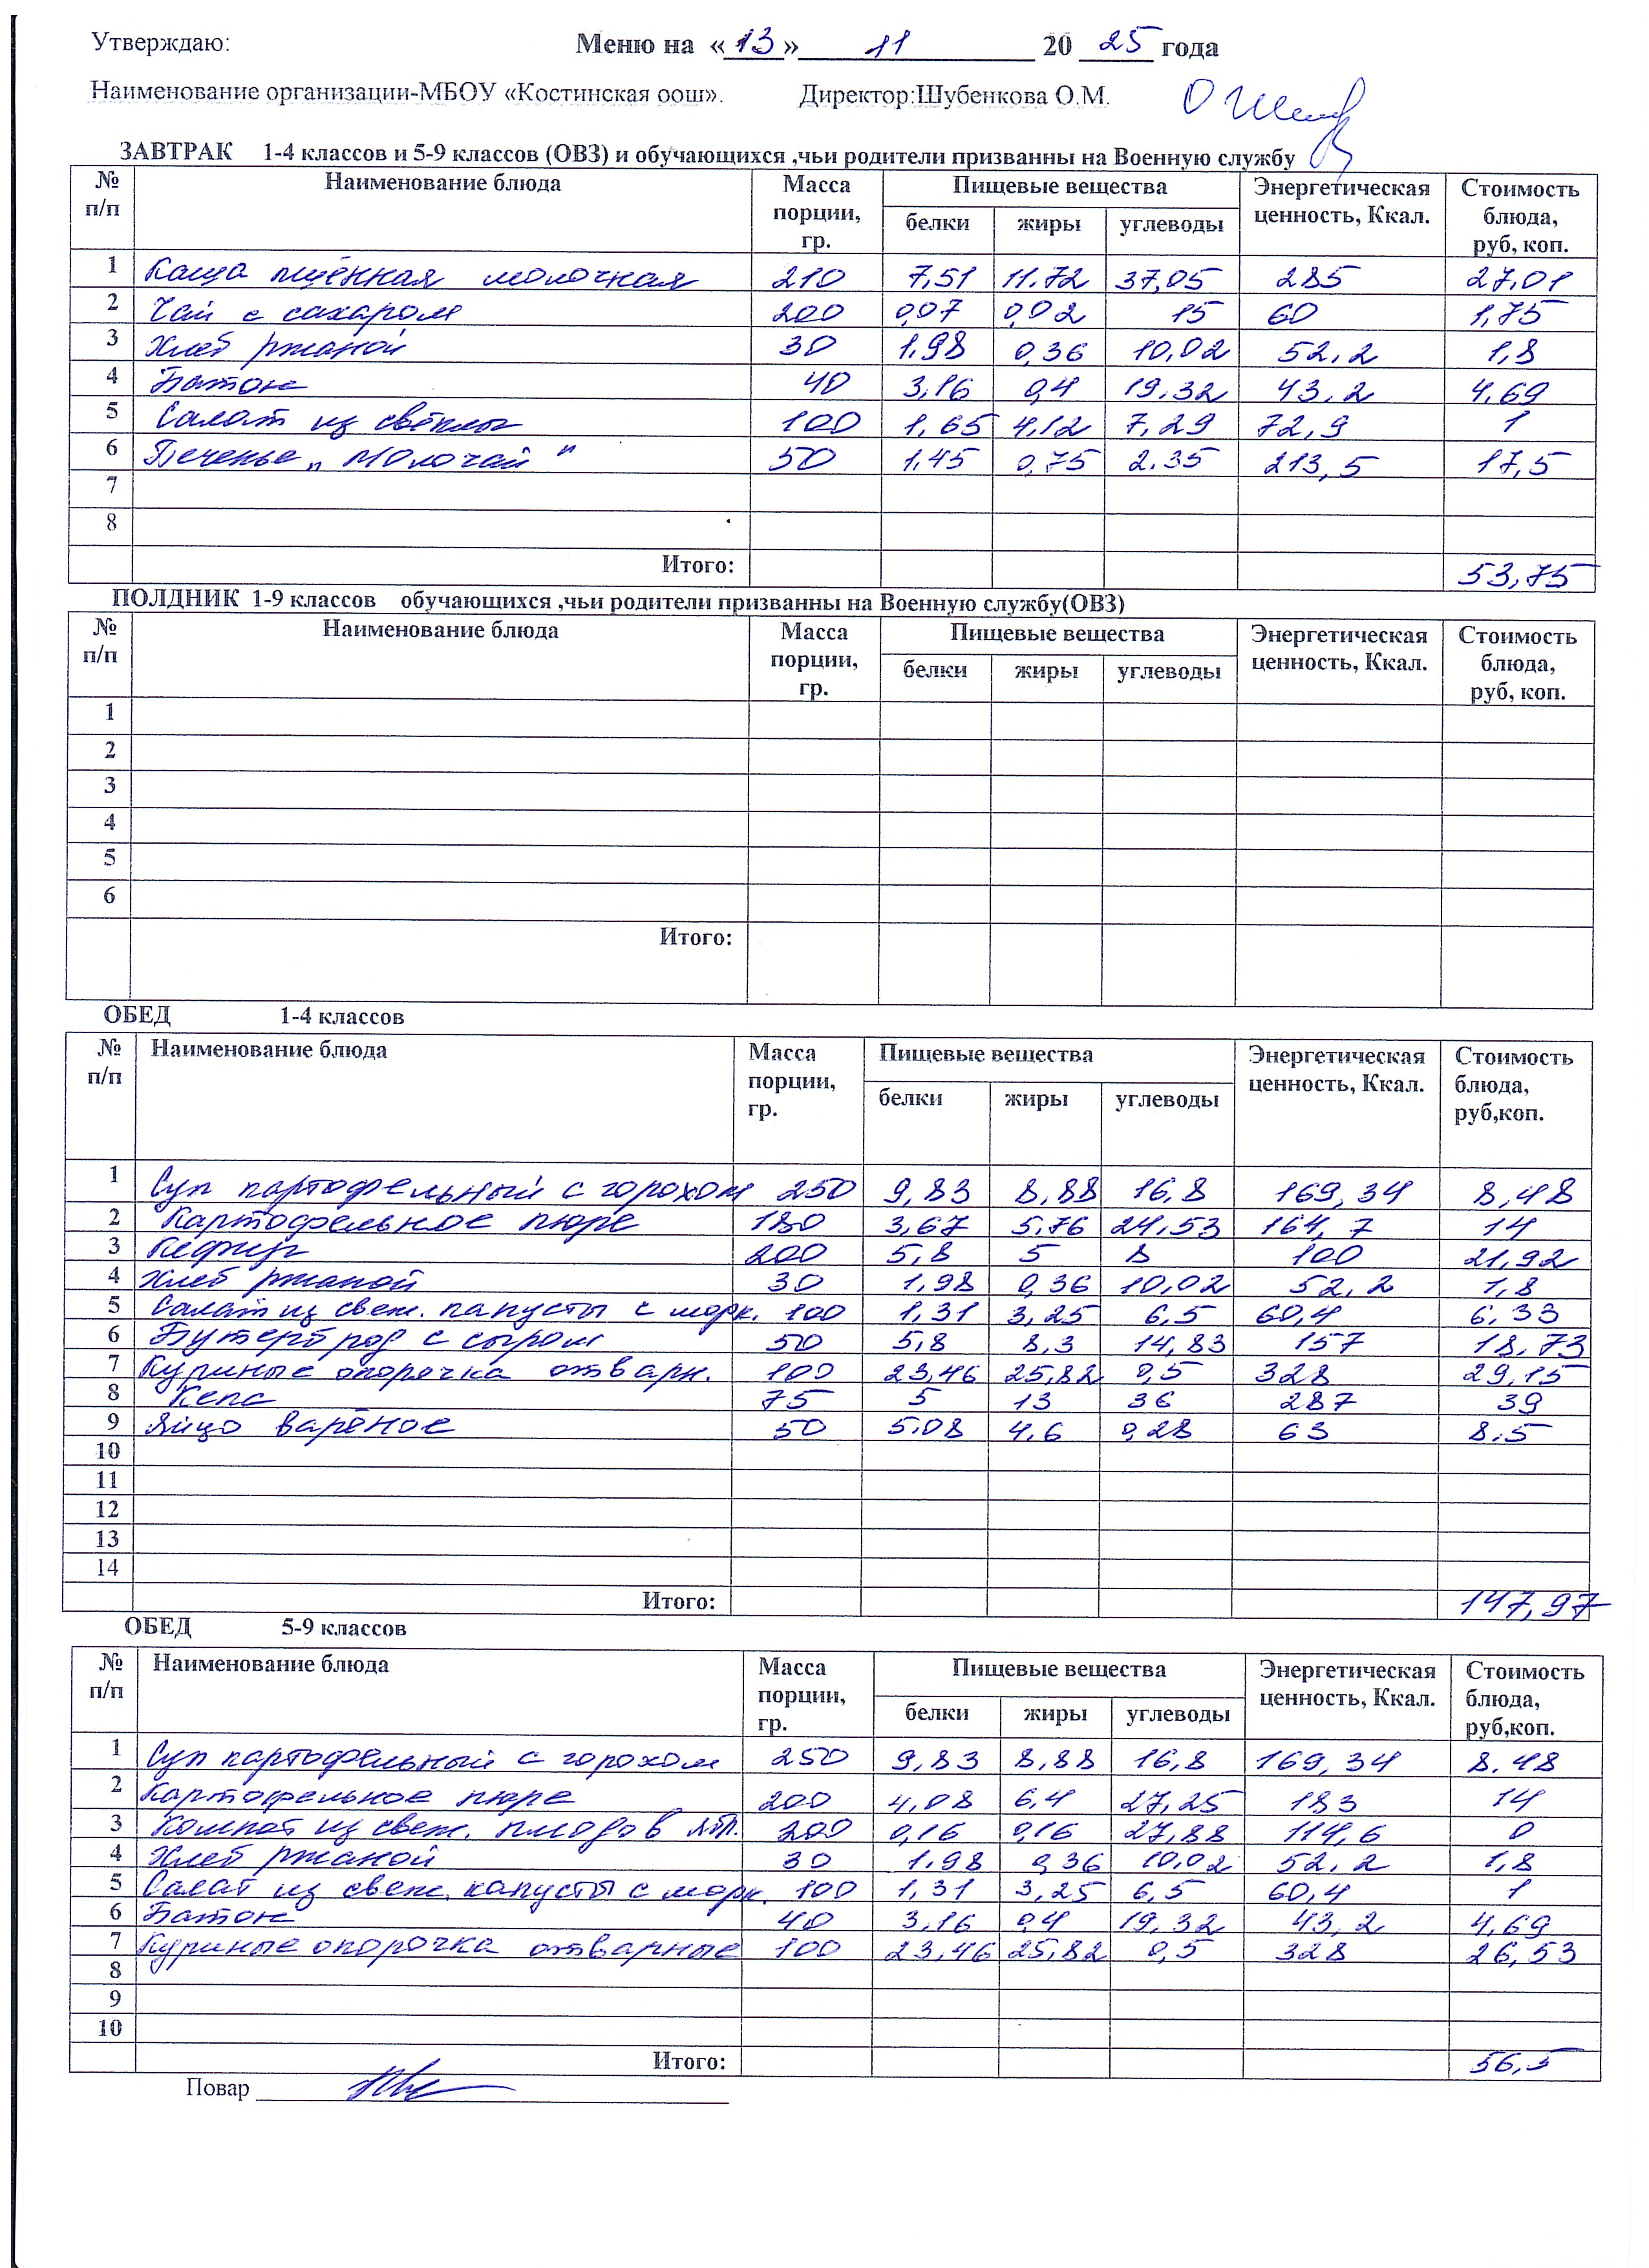 Утверждаю: Меню на «13» 11 2025 года
Наименование организации-МБОУ «Костинская оош». Директор:Шубенкова О.М.
ЗАВТРАК 1-4 классов и 5-9 классов (ОВЗ) и обучающихся ,чьи родители призванны на Военную службу
№ п/п Наименование блюда Масса порции, гр. Пищевые вещества Энергетическая ценность, Ккал. Стоимость блюда, руб, коп.
белки жиры углеводы
1 Каша пшённая молочная 210 7,51 11.72 37,05 285 27,01
2 Чай с сахаром 200 0,07 0,02 15 60 1,75
3 Хлеб ржаной 30 1,98 0,36 10,02 52,2 1,8
4 Батон 40 3,16 0,4 19,32 43,2 4,69
5 Салат из свёклы 100 1,65 4,12 7,29 72,9 1
6 Печенье „Молочай" 50 1,45 0,75 2.35 213,5 17,5
7
8
Итого: 53,75
ПОЛДНИК 1-9 классов обучающихся ,чьи родители призванны на Военную службу(ОВЗ)
№ п/п Наименование блюда Масса порции, гр. Пищевые вещества Энергетическая ценность, Ккал. Стоимость блюда, руб, коп.
белки жиры углеводы
1
2
3
4
5
6
Итого:
ОБЕД 1-4 классов
№ п/п Наименование блюда Масса порции, гр. Пищевые вещества Энергетическая ценность, Ккал. Стоимость блюда, руб,коп.
белки жиры углеводы
1 Суп картофельный с горохом 250 9,83 8,88 16,8 169,34 8,48
2 Картофельное пюре 180 3,67 5,76 24,53 164,7 14
3 Кефир 200 5,8 5 8 100 21,92
4 Хлеб ржаной 30 1,98 0,36 10,02 52,2 1,8
5 Салат из свеж. капусты с морк. 100 1,31 3,25 6,5 60,4 6,33
6 Бутерброд с сыром 50 5,8 8,3 14,83 157 18,73
7 Куриные окорочка отварн. 100 23,46 25,82 0,5 328 29,15
8 Кекс 75 5 13 36 287 39
9 Яйцо варёное 50 5,08 4,6 0,28 63 8,5
10
11
12
13
14
Итого: 147,97
ОБЕД 5-9 классов
№ п/п Наименование блюда Масса порции, гр. Пищевые вещества Энергетическая ценность, Ккал. Стоимость блюда, руб,коп.
белки жиры углеводы
1 Суп картофельный с горохом 250 9,83 8,88 16,8 169,34 8.48
2 Картофельное пюре 200 4,08 6,4 27,25 183 14
3 Компот из свеж. плодов 200 0,16 0,16 27,88 114,6 0
4 Хлеб ржаной 30 1,98 0,36 10,02 52,2 1,8
5 Салат из свеж. капусты с морк. 100 1,31 3,25 6,5 60,4 1
6 Батон 40 3,16 0,4 19,32 43,2 4,69
7 Куриные окорочка отварные 100 23,46 25,82 0,5 328 26,53
8
9
10
Итого: 56,5
Повар